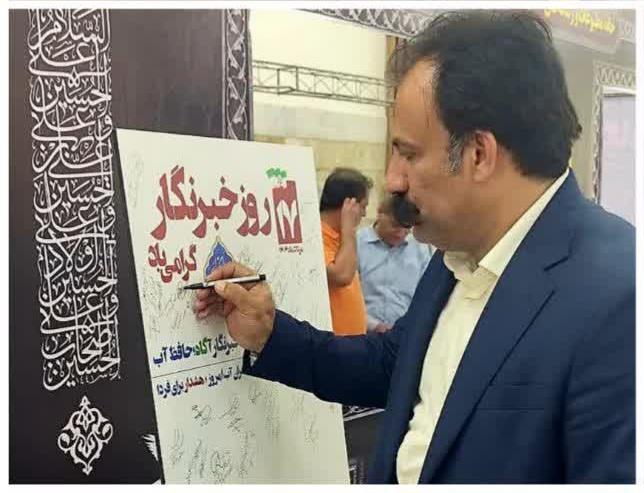 السلام
علی
الحسین
و علی
علی بن
الحسین
و علی
اولاد
الحسین
و علی
اصحاب
الحسین
۱۷
مرداد
روز خبرنگار
گرامی باد
خبرنگار آگاه؛ حافظ آب
آب امروز، هشدار برای فردا